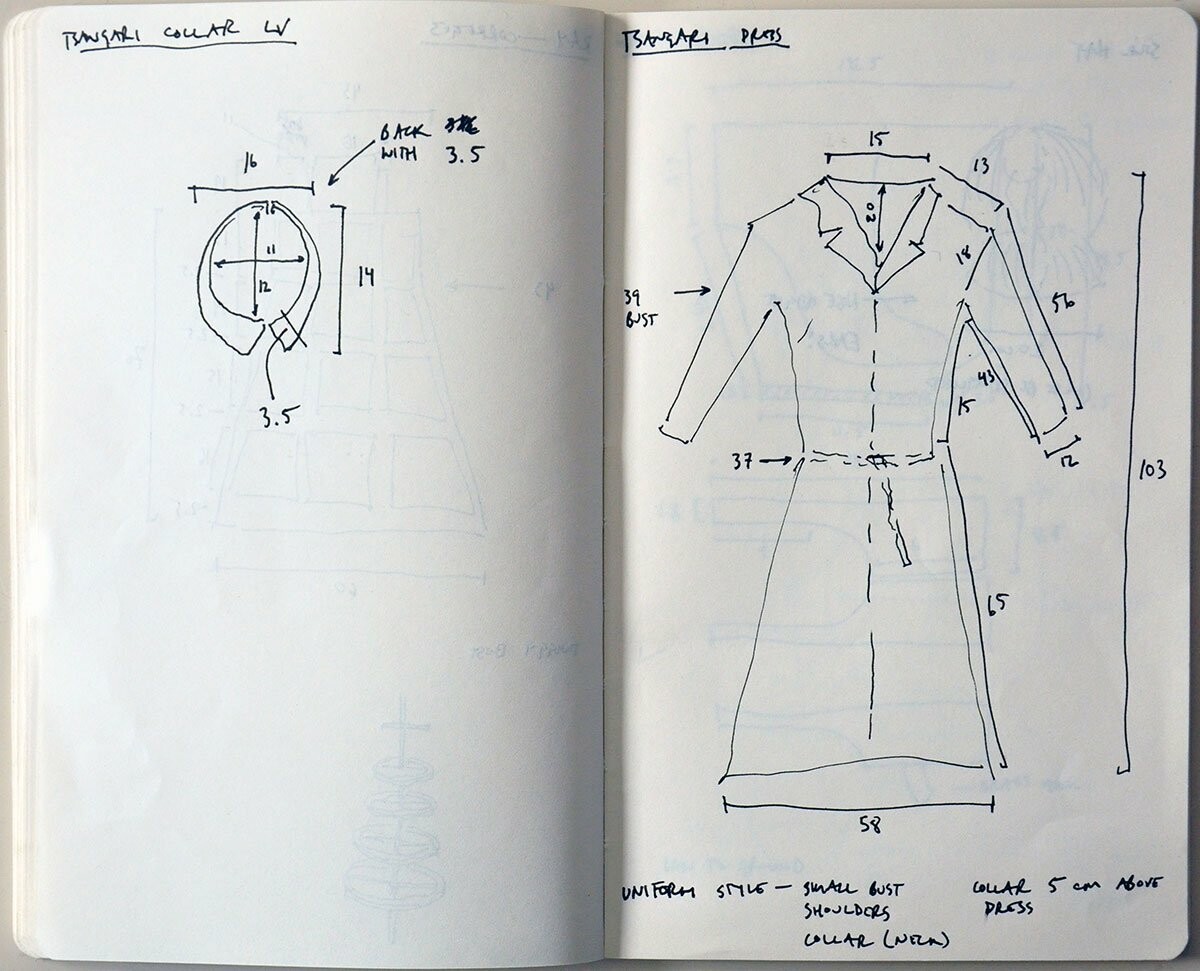 TSANGARI COLLAR LV
BACK
WITH 3.5
16
16
11
12
14
3.5
TSANGARI DRESS
15
13
20
18
39
BUST
56
43
15
37
12
103
65
58
UNIFORM STYLE — SMALL BUST
SHOULDERS
COLLAR (NECK)
COLLAR 5 cm ABOVE
DRESS